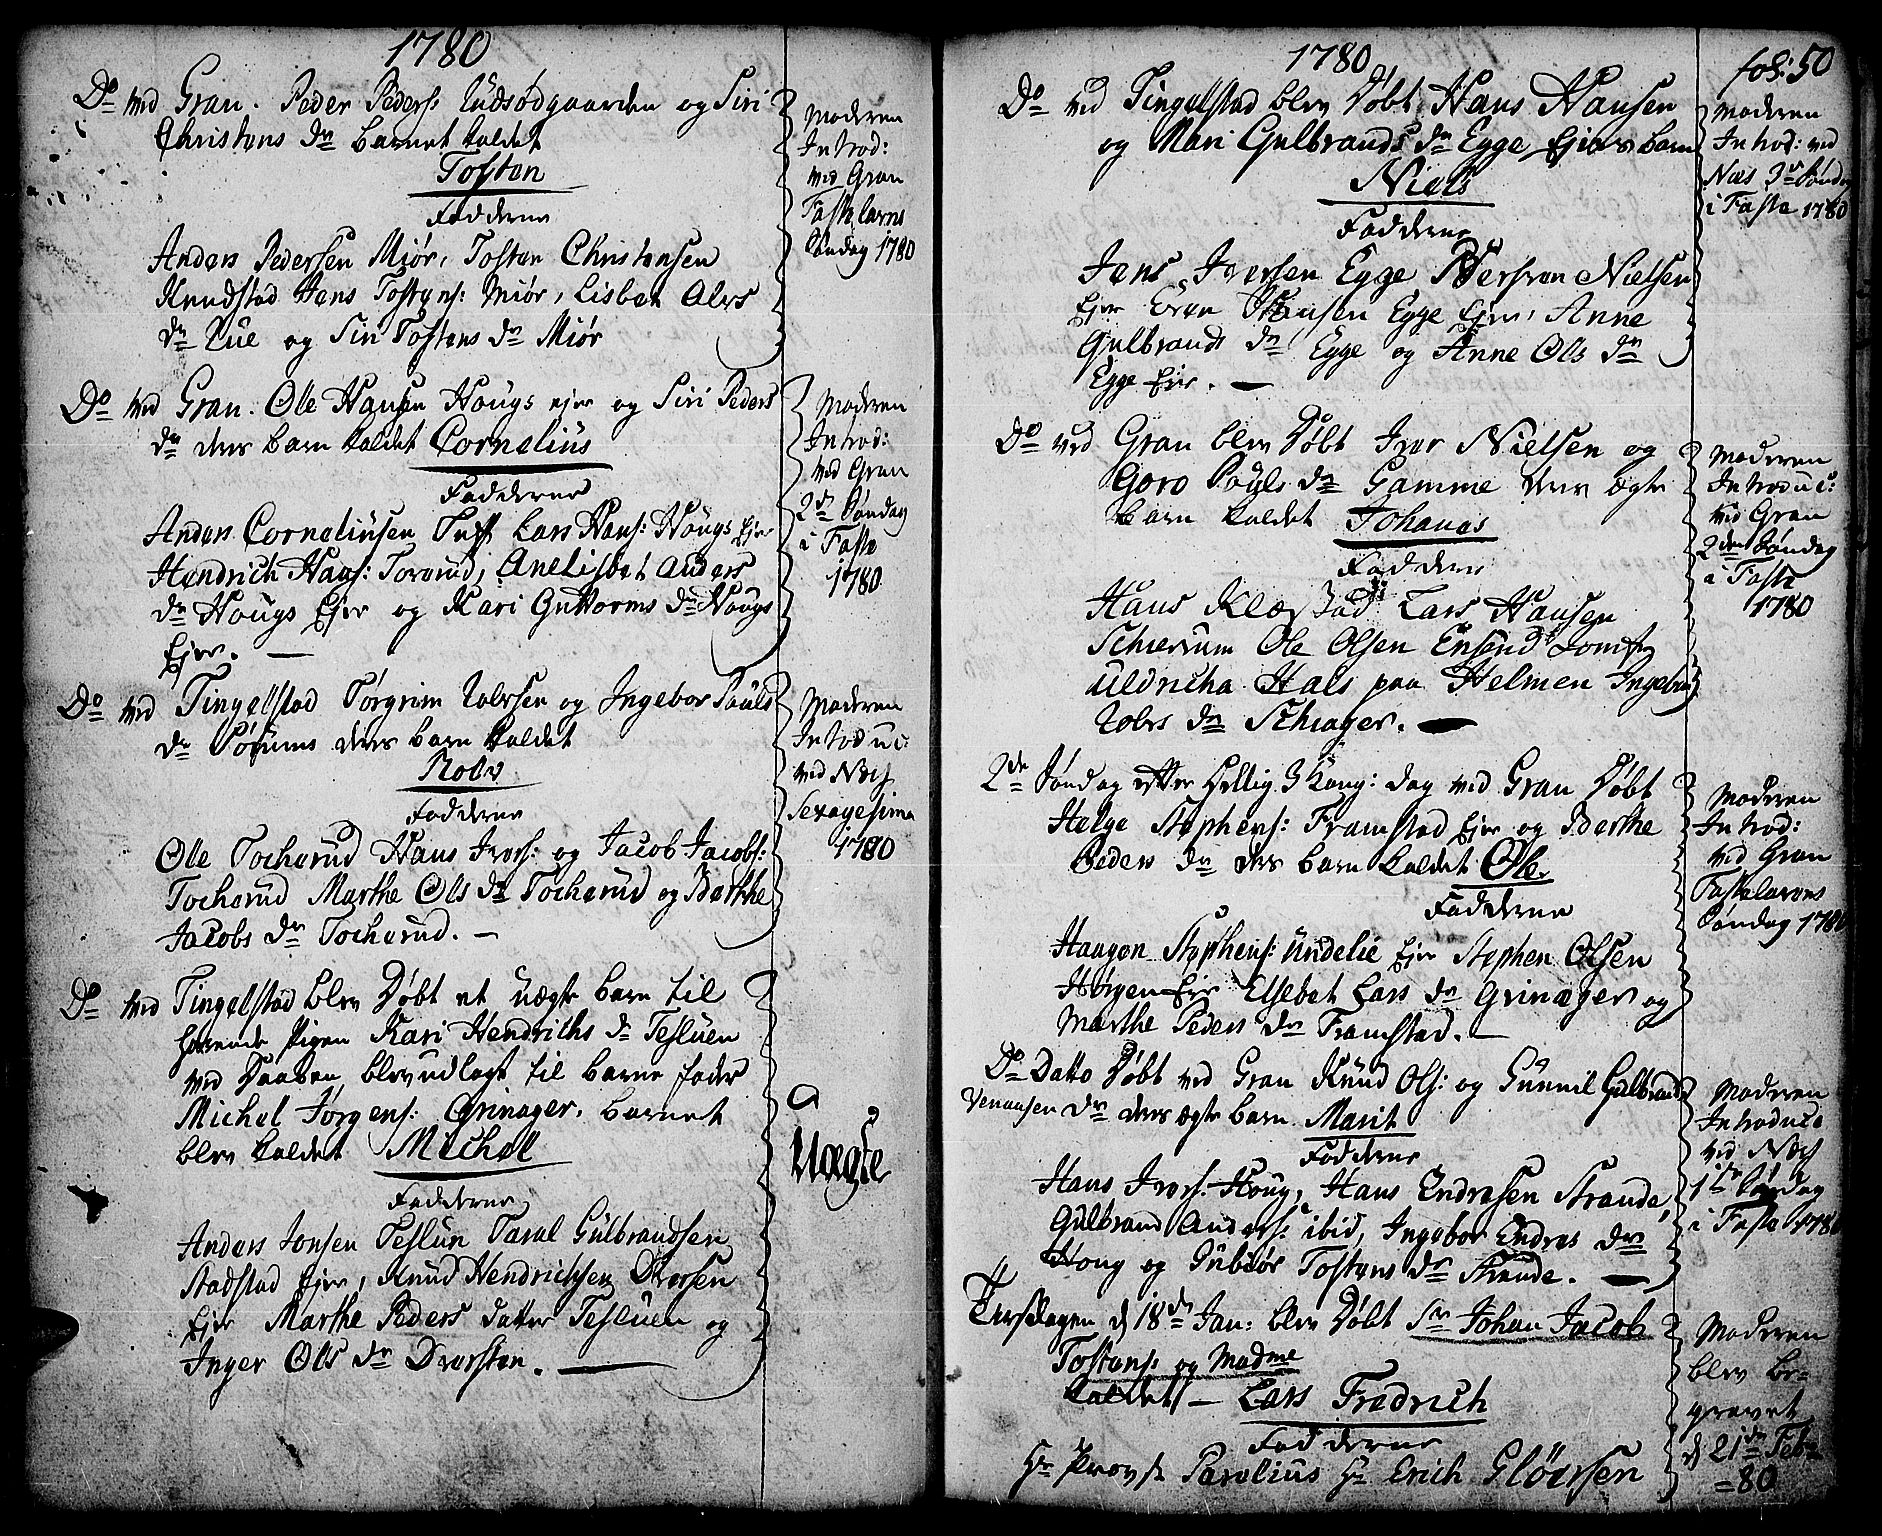 1780
Do ved Gran. Peder Peders: Ludsødgaarden og Siri
Christens dr barnet kaldet
Tosten
Fadderne
Anders Pedersen Miør, Tosten Christensen
Knudstad Jens Tostens: Miør, Lisbet Alvs
dr Lue og Siri Tostens dr Miør
Moderen
Introd:
ved Gran
Fastelavns
Søndag 1780
Do ved Gran. Ole Hansen Hougs ejer og Siri Peders
dr deres barn kaldet Cornelius
Fadderne
Anders Corneliusen Tuft Lars Hans: Hougs Ejer
Hendrich Hans: Torerud, Anelisbet Anders
dr Hougs Ejer og Kari Guttorms dr Hougs
Ejer. —
Moderen
Introd:
ved Gran
2de Søndag
i Faste
1780
Do ved Tingelstad Torgrim Rolvsen og Ingebor Pauls
dr Sørums deres barn kaldet
Rolv
Fadderne
Ole Tocherud Hans Ivers: og Jacob Jacobs:
Tocherud Marthe Ols dr Tocherud og Berthe
Jacobs dr Tocherud. —
Moderen
Introduc:
ved Næs
Sexagesima
1780
Do ved Tingelstad blev Døbt et uægte barn til
hørende Pigen Kari Hendrichs dr Tesluen
ved Daaben blev udlagt til barne fader
Michel Jørgens: Grinager. barnet
blev kaldet Michel
Fadderne
Anders Jonsen Teslun Taral Gulbrandsen
Stadstad Ejer, Knud Hendrichsen Dversten
Ejer Marthe Peders datter Tesluen og
Inger Ols dr Dversten. —
Uægte
1780
fol: 50
Do ved Tingelstad blev Døbt Hans Hansen
og Mari Gulbrands dr Egge Ejers barn
Niels
Fadderne
Jens Iversen Egge Nielsen
Ejer Even Hansen Egge Ejer, Anne
Gulbrands dr Egge og Anne Ols dr
Egge Ejer. —
Moderen
Introd: ved
Næs 3de Søndag
i Faste 1780
Do ved Gran blev Døbt Iver Nielsen og
Goro Pouls dr Gamme deres ægte
barn kaldet Johanes
Fadderne
Hans Klæstad Lars Hansen
Schierrum Ole Olsen Ensend Jomfr
Uldricha Hals paa Helmen Ingebor
Rolvs dr Schiager. —
Moderen
Introduc:
ved Gran
2den Søndag
i Faste
1780
2de Søndag efter Hellig 3 Kong: dag ved Gran Døbt
Helge Stephens: Framstad Ejer og Berthe
Peders dr deres barn kaldet Ole
Fadderne
Haagen Stephens: Undelie Ejer Stephen Olsen
Horgen Ejer Elsebet Lars dr Grinager og
Marthe Peders dr Framstad. —
Moderen
Introd:
ved Gran
Fastelavens
Søndag 1780
Do Datto Døbt ved Gran Knud Ols: og Gunnil Gulbrands
Venaasen dr deres ægte barn Marit
Fadderne
Hans Ivers: Houg, Hans Endresen Strande,
Gulbrand Anders: ibid, Ingebor Endres dr
Houg og Gubiør Tostens dr Strande. —
Moderen
Introduc
ved Næs
1ste Søndag
i Faste 1780
Tirsdagen d 18de Jan: blev Døbt Sr Johan Jacob
Tostens: og Madme
kaldet — Lars Fredrich
Fadderne
Hr Provst Parelius Hr Erich Gløersen
Moderen
blev be=
gravet
d 21de Feb:
=80